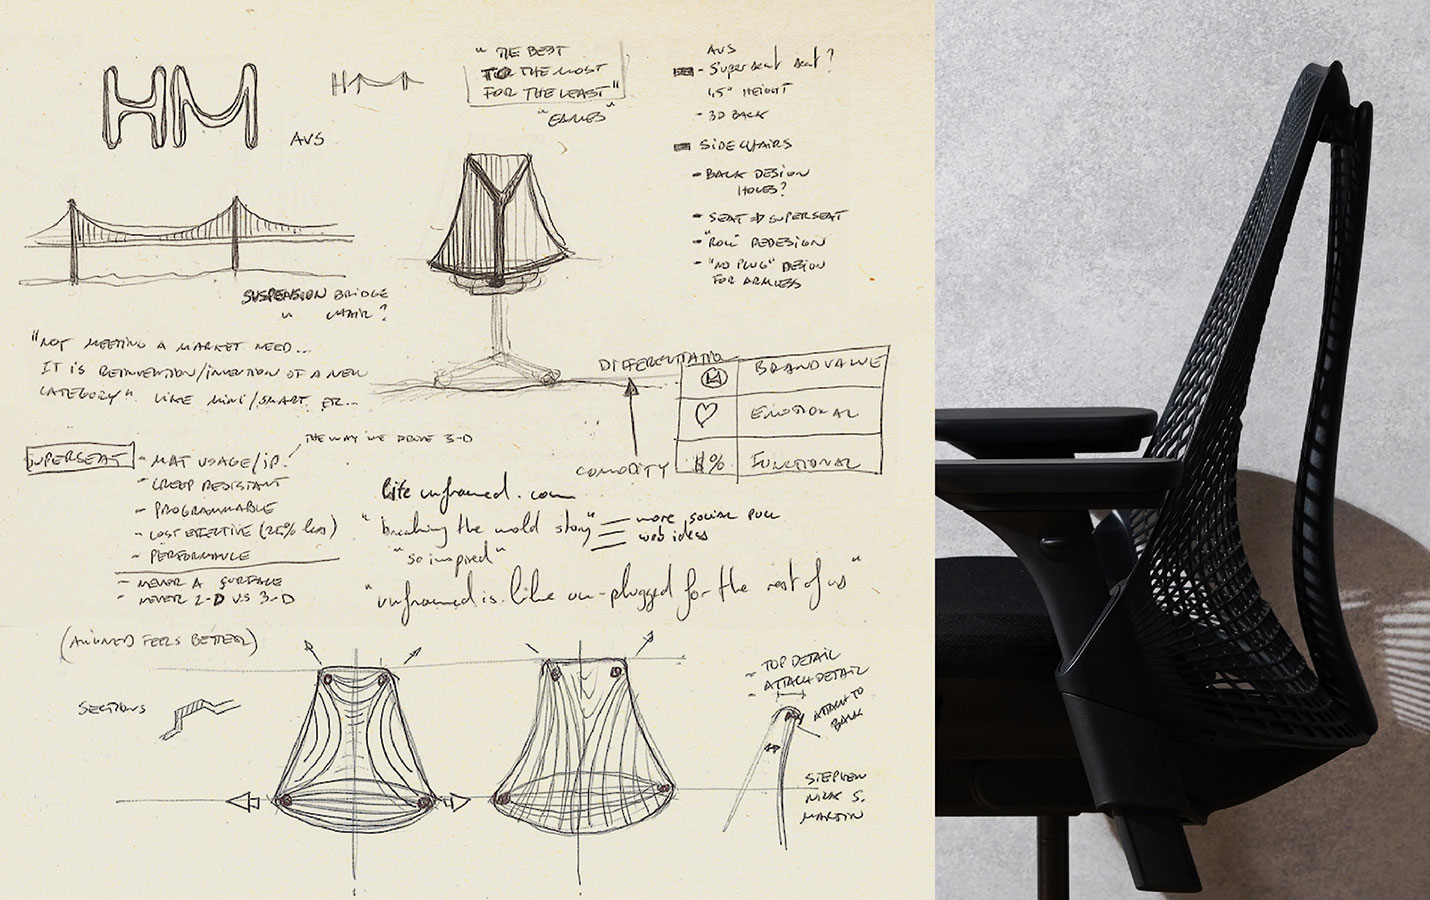 HM
AVS
HM
"THE BEST
FOR THE MOST
FOR THE LEAST"
"EAMES"
AVS
- Superseat seat?
45° HEIGHT
- 3D BACK
SIDE CHAIRS
- BACK DESIGN
HOLES?
- SEAT ⇒ SUPERSEAT
- "ROLL" REDESIGN
- "NO PLUG" DESIGN
FOR ARMLESS
SUSPENSION BRIDGE
" CHAIR?
"NOT MEETING A MARKET NEED...
IT IS REINVENTION/INVENTION OF A NEW
CATEGORY" LIKE MINI/SMART
DIFFERENTIATION
BRAND VALUE
EMOTIONAL
% FUNCTIONAL
COMODITY
THE WAY WE DRIVE 3-D
SUPERSEAT - MAT USAGE/IP.
- CREEP RESISTANT
- PROGRAMMABLE
- COST EFFECTIVE (25% less)
- PERFORMANCE
- NEVER A SURFACE
- NEVER 2-D V.S 3-D
life unframed.com
"breaking the mold story" more social pull
web ideas
"so inspired"
"unframed is like un-plugged for the rest of us"
(ALIGNED FEELS BETTER)
SECTIONS
- TOP DETAIL
- ATTACH DETAIL
ATTACH TO
BACK
STEPHEN
NICK S.
MARTIN